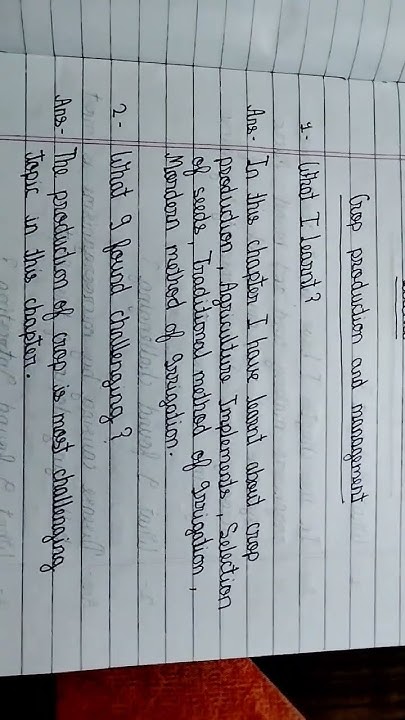 Crop production and management
1- What I learnt?
Ans- In this chapter I have learnt about crop
production, Agriculture Implements, Selection
of seeds, Traditional method of Irrigation,
Mordern method of Irrigation.
2- What I found challenging?
Ans- The production of crop is most challenging
topic in this chapter.